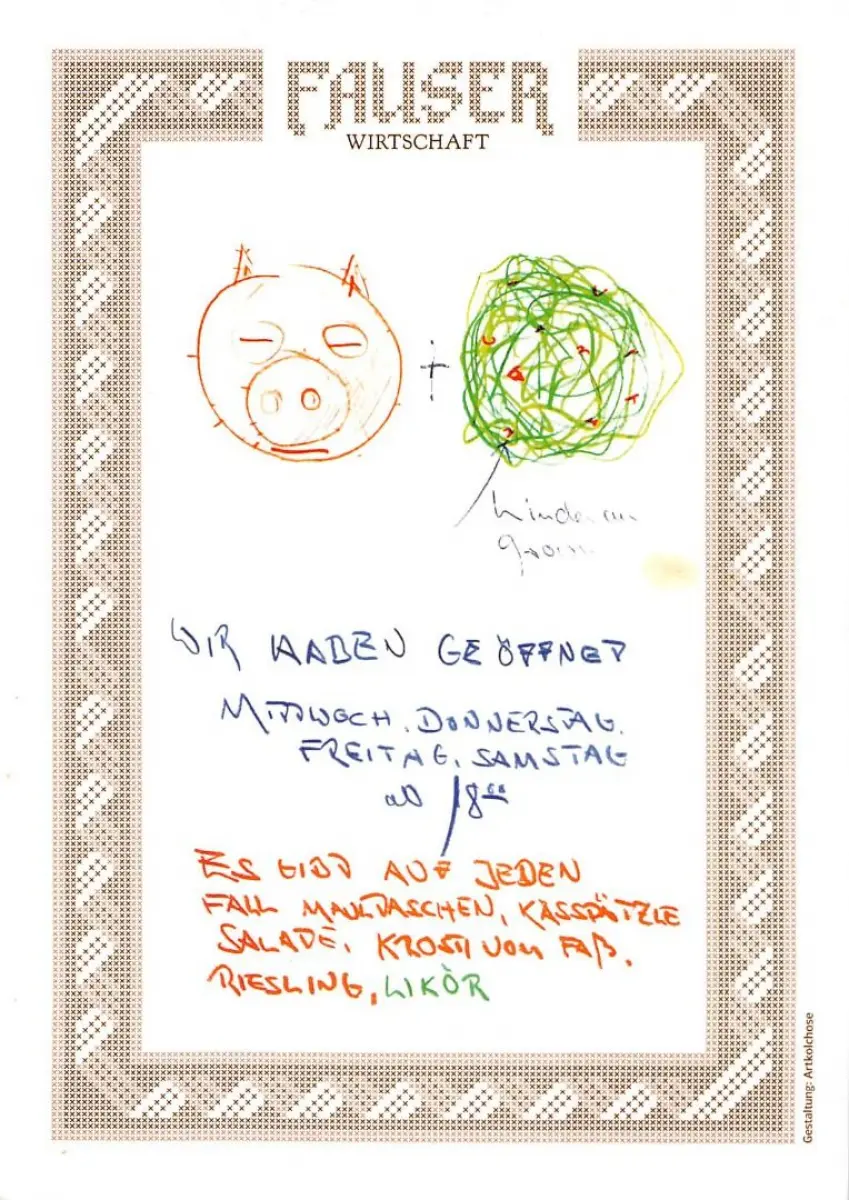 FAUSER
WIRTSCHAFT
+
WIR HABEN GEÖFFNET
MITTWOCH, DONNERSTAG,
FREITAG, SAMSTAG
ab 18⁰⁰
ES GIBT AUF JEDEN
FALL MAULTASCHEN, KÄSSPÄTZLE
SALATE, VOM FAß,
RIESLING, LIKÖR
Gestaltung: Artkolchose